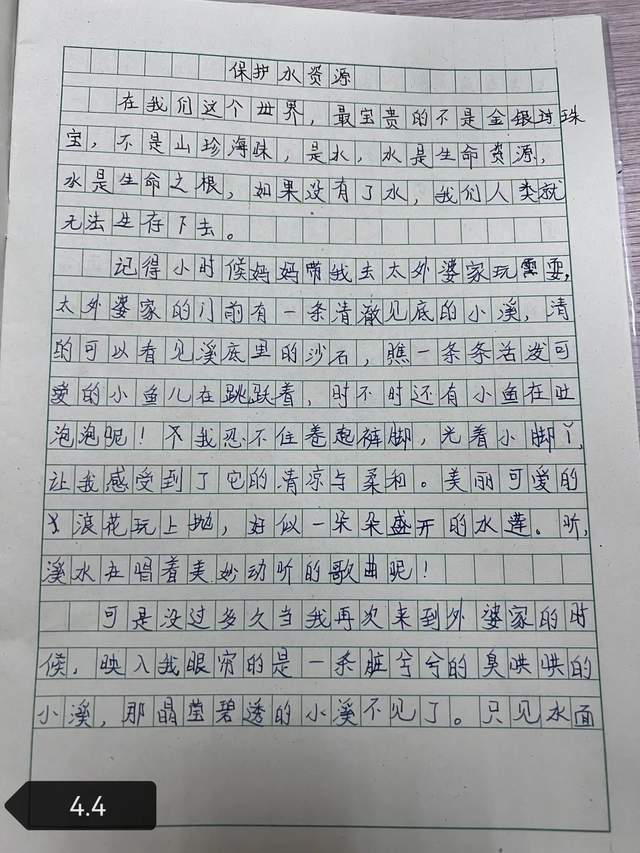 保护水资源
在我们这个世界，最宝贵的不是金银珠
宝，不是山珍海味，是水，水是生命资源，
水是生命之根，如果没有了水，我们人类就
无法生存下去。
记得小时候妈妈带我去太外婆家玩耍，
太外婆家的门前有一条清澈见底的小溪，清
的可以看见溪底里的沙石，瞧一条条活泼可
爱的小鱼儿在跳跃着，时不时还有小鱼在吐
泡泡呢！我忍不住卷起裤脚，光着小脚丫，
让我感受到了它的清凉与柔和。美丽可爱的
浪花玩上抛，好似一朵朵盛开的水莲。听，
溪水在唱着美妙动听的歌曲呢！
可是没过多久当我再次来到外婆家的时
候，映入我眼帘的是一条脏兮兮的臭哄哄的
小溪，那晶莹碧透的小溪不见了。只见水面
4.4